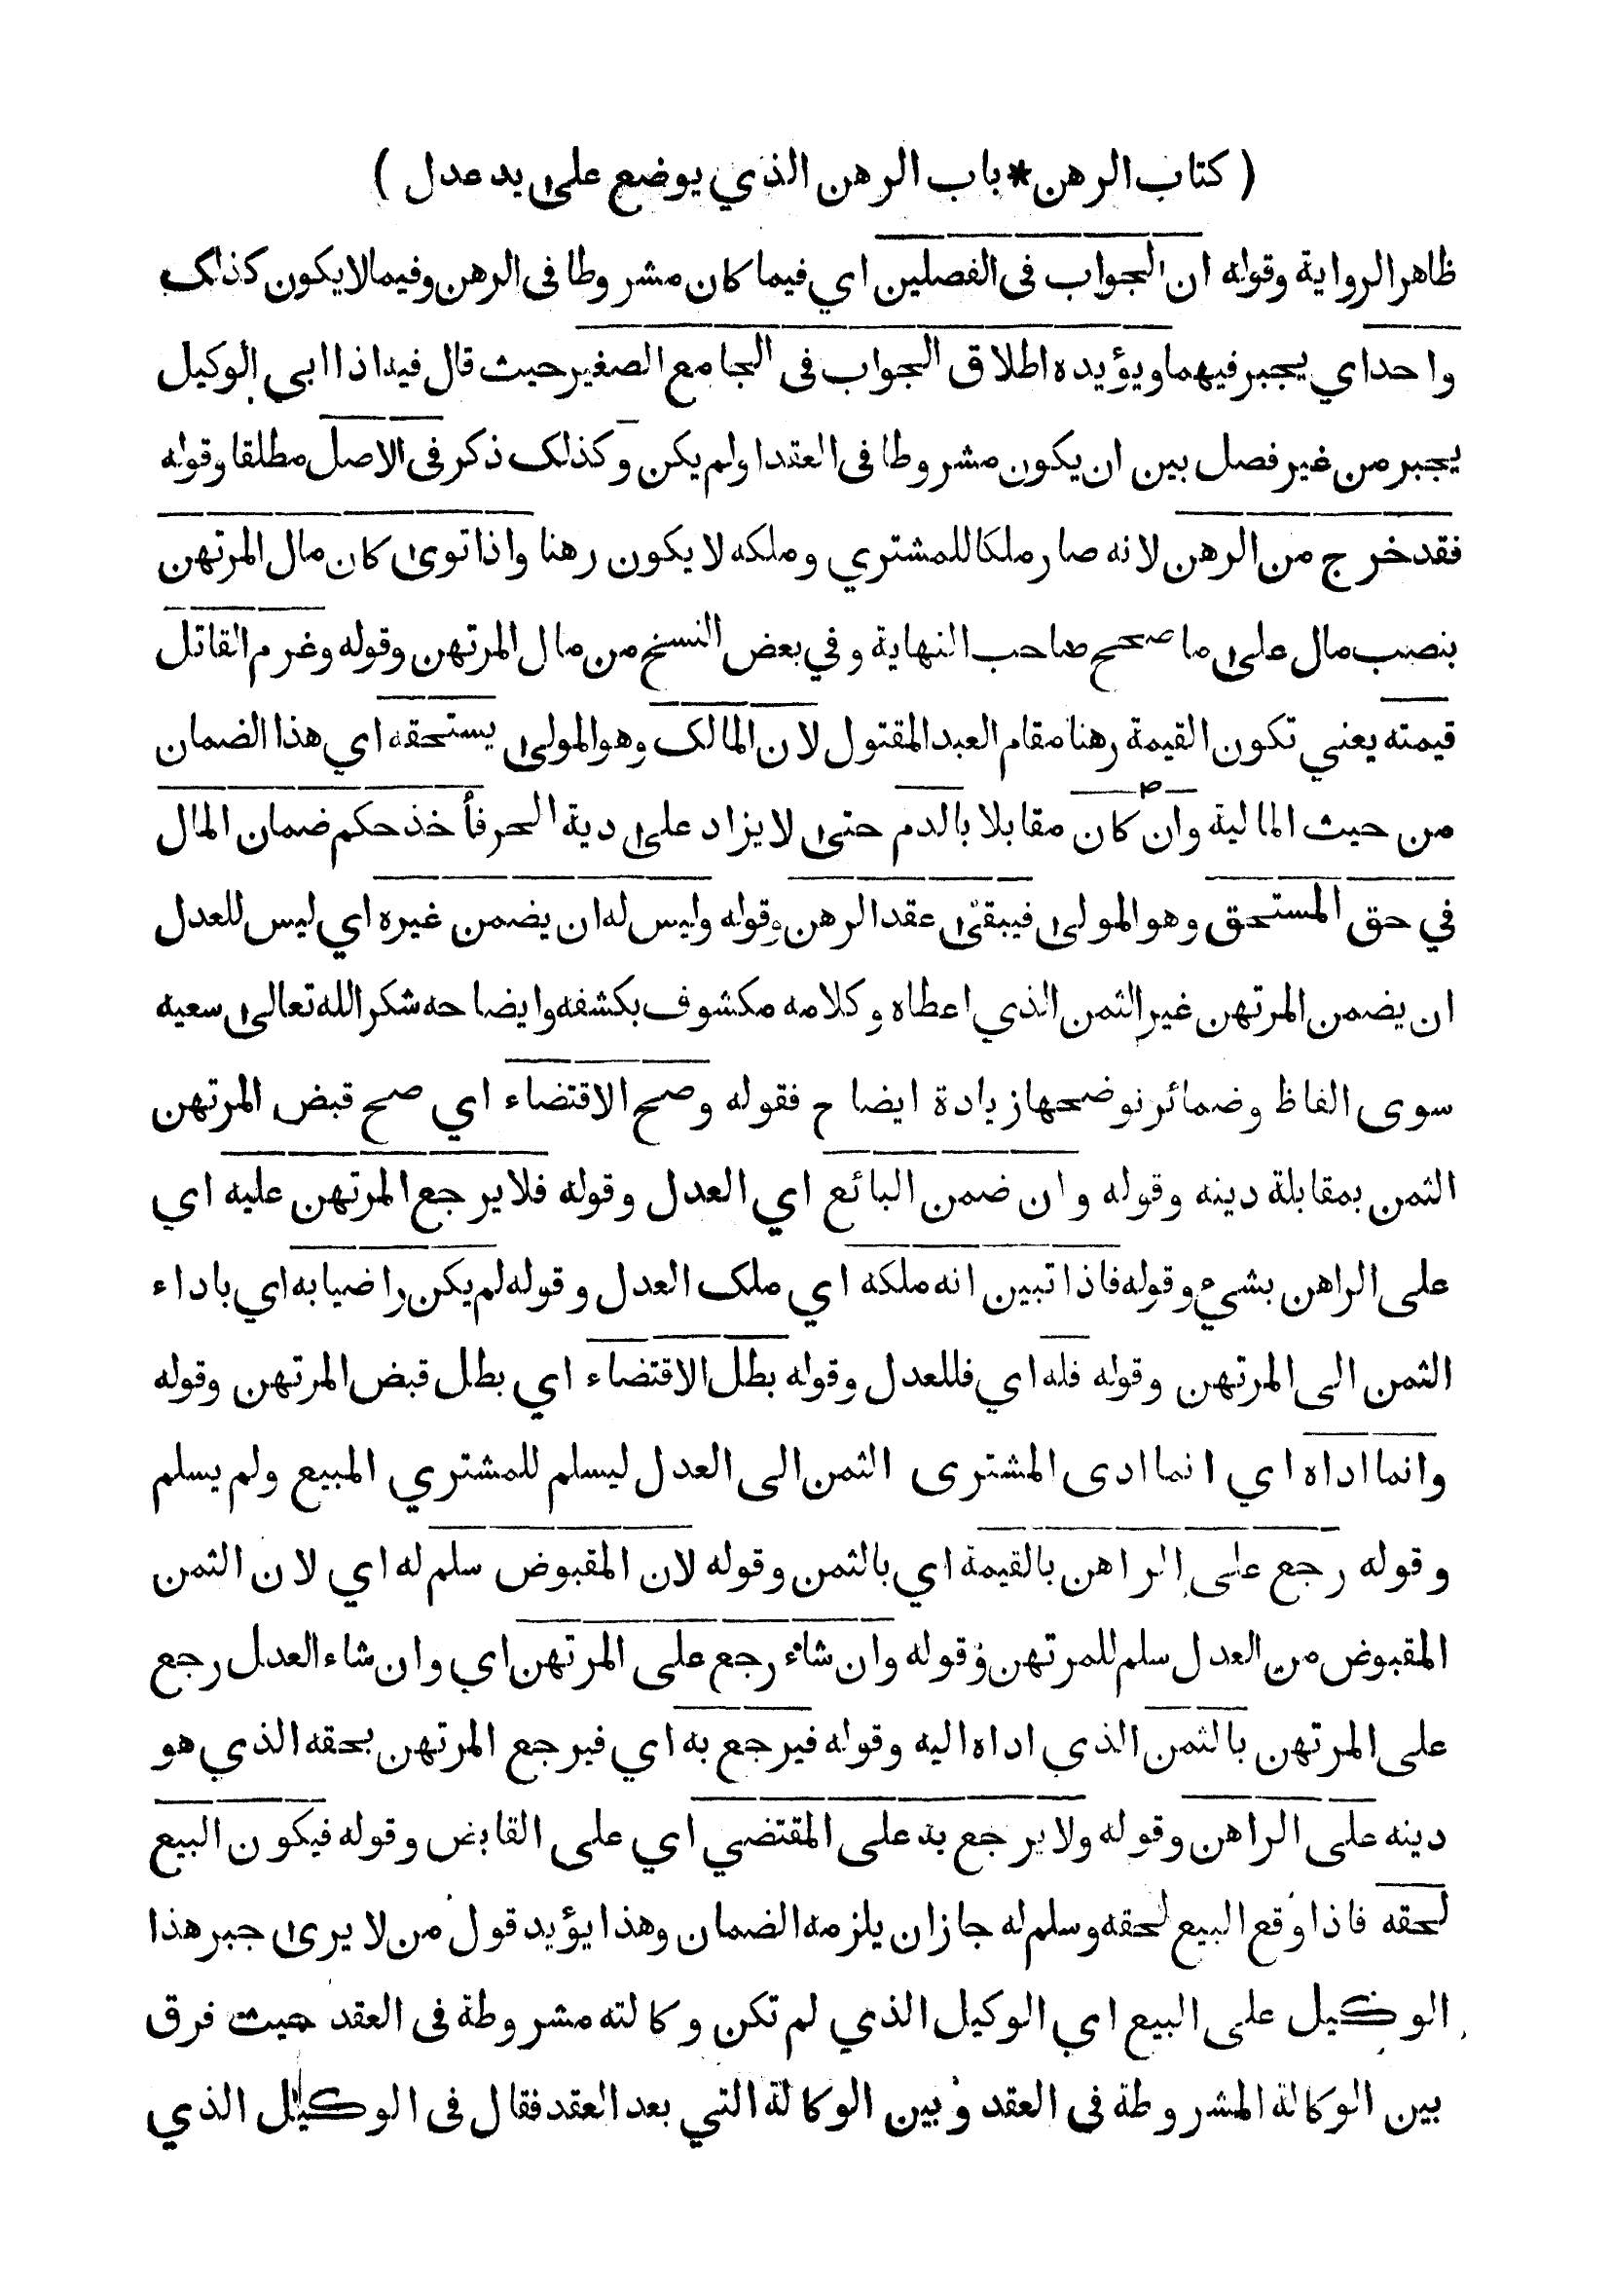 ( كتاب الرهن * باب الرهن الذي يوضع على يد عدل )
ظاهر الرواية وقوله ان الجواب فى الفصلين اي فيما كان مشروطا فى الرهن وفيما لا يكون كذلك
واحد اي يجبر فيهما ويؤيده اطلاق الجواب فى الجامع الصغير حيث قال فيه اذا ابى الوكيل
يجبر من غير فصل بين ان يكون مشروطا فى العقد او لم يكن وكذلك ذكر فى الاصل مطلقا وقوله
فقد خرج من الرهن لانه صار ملكا للمشتري وملكه لا يكون رهنا واذا توى كان مال المرتهن
بنصب مال على ما صححح صاحب النهاية وفي بعض النسخ من مال المرتهن وقوله وغرم القاتل
قيمته يعني تكون القيمة رهنا مقام العبد المقتول لان المالك وهو المولى يستحقه اي هذا الضمان
من حيث المالية وان كان مقابلا بالدم حتى لا يزاد على دية الحر فأخذ حكم ضمان المال
في حق المستحق وهو المولى فيبقى عقد الرهن وقوله وليس له ان يضمن غيره اي ليس للعدل
ان يضمن المرتهن غير الثمن الذي اعطاه وكلامه مكشوف بكشفه وايضاحه شكر الله تعالى سعيه
سوى الفاظ وضمائر نوضحها زيادة ايضاح فقوله وصح الاقتضاء اي صح قبض المرتهن
الثمن بمقابلة دينه وقوله وان ضمن البائع اي العدل وقوله فلا يرجع المرتهن عليه اي
على الراهن بشيء وقوله فاذا تبين انه ملكه اي ملك العدل وقوله لم يكن راضيا به اي باداء
الثمن الى المرتهن وقوله فله اي فللعدل وقوله بطل الاقتضاء اي بطل قبض المرتهن وقوله
وانما اداه اي انما ادى المشترى الثمن الى العدل ليسلم للمشتري المبيع ولم يسلم
وقوله رجع على الراهن بالقيمة اي بالثمن وقوله لان المقبوض سلم له اي لان الثمن
المقبوض من العدل سلم للمرتهن وقوله وان شاء رجع على المرتهن اي وان شاء العدل رجع
على المرتهن بالثمن الذي اداه اليه وقوله فيرجع به اي فيرجع المرتهن بحقه الذي هو
دينه على الراهن وقوله ولا يرجع به على المقتضي اي على القابض وقوله فيكون البيع
لحقه فاذا وقع البيع لحقه وسلم له جاز ان يلزمه الضمان وهذا يؤيد قول من لا يرى جبر هذا
الوكيل على البيع اي الوكيل الذي لم تكن وكالته مشروطة فى العقد حيث فرق
بين الوكالة المشروطة فى العقد وبين الوكالة التي بعد العقد فقال فى الوكيل الذي